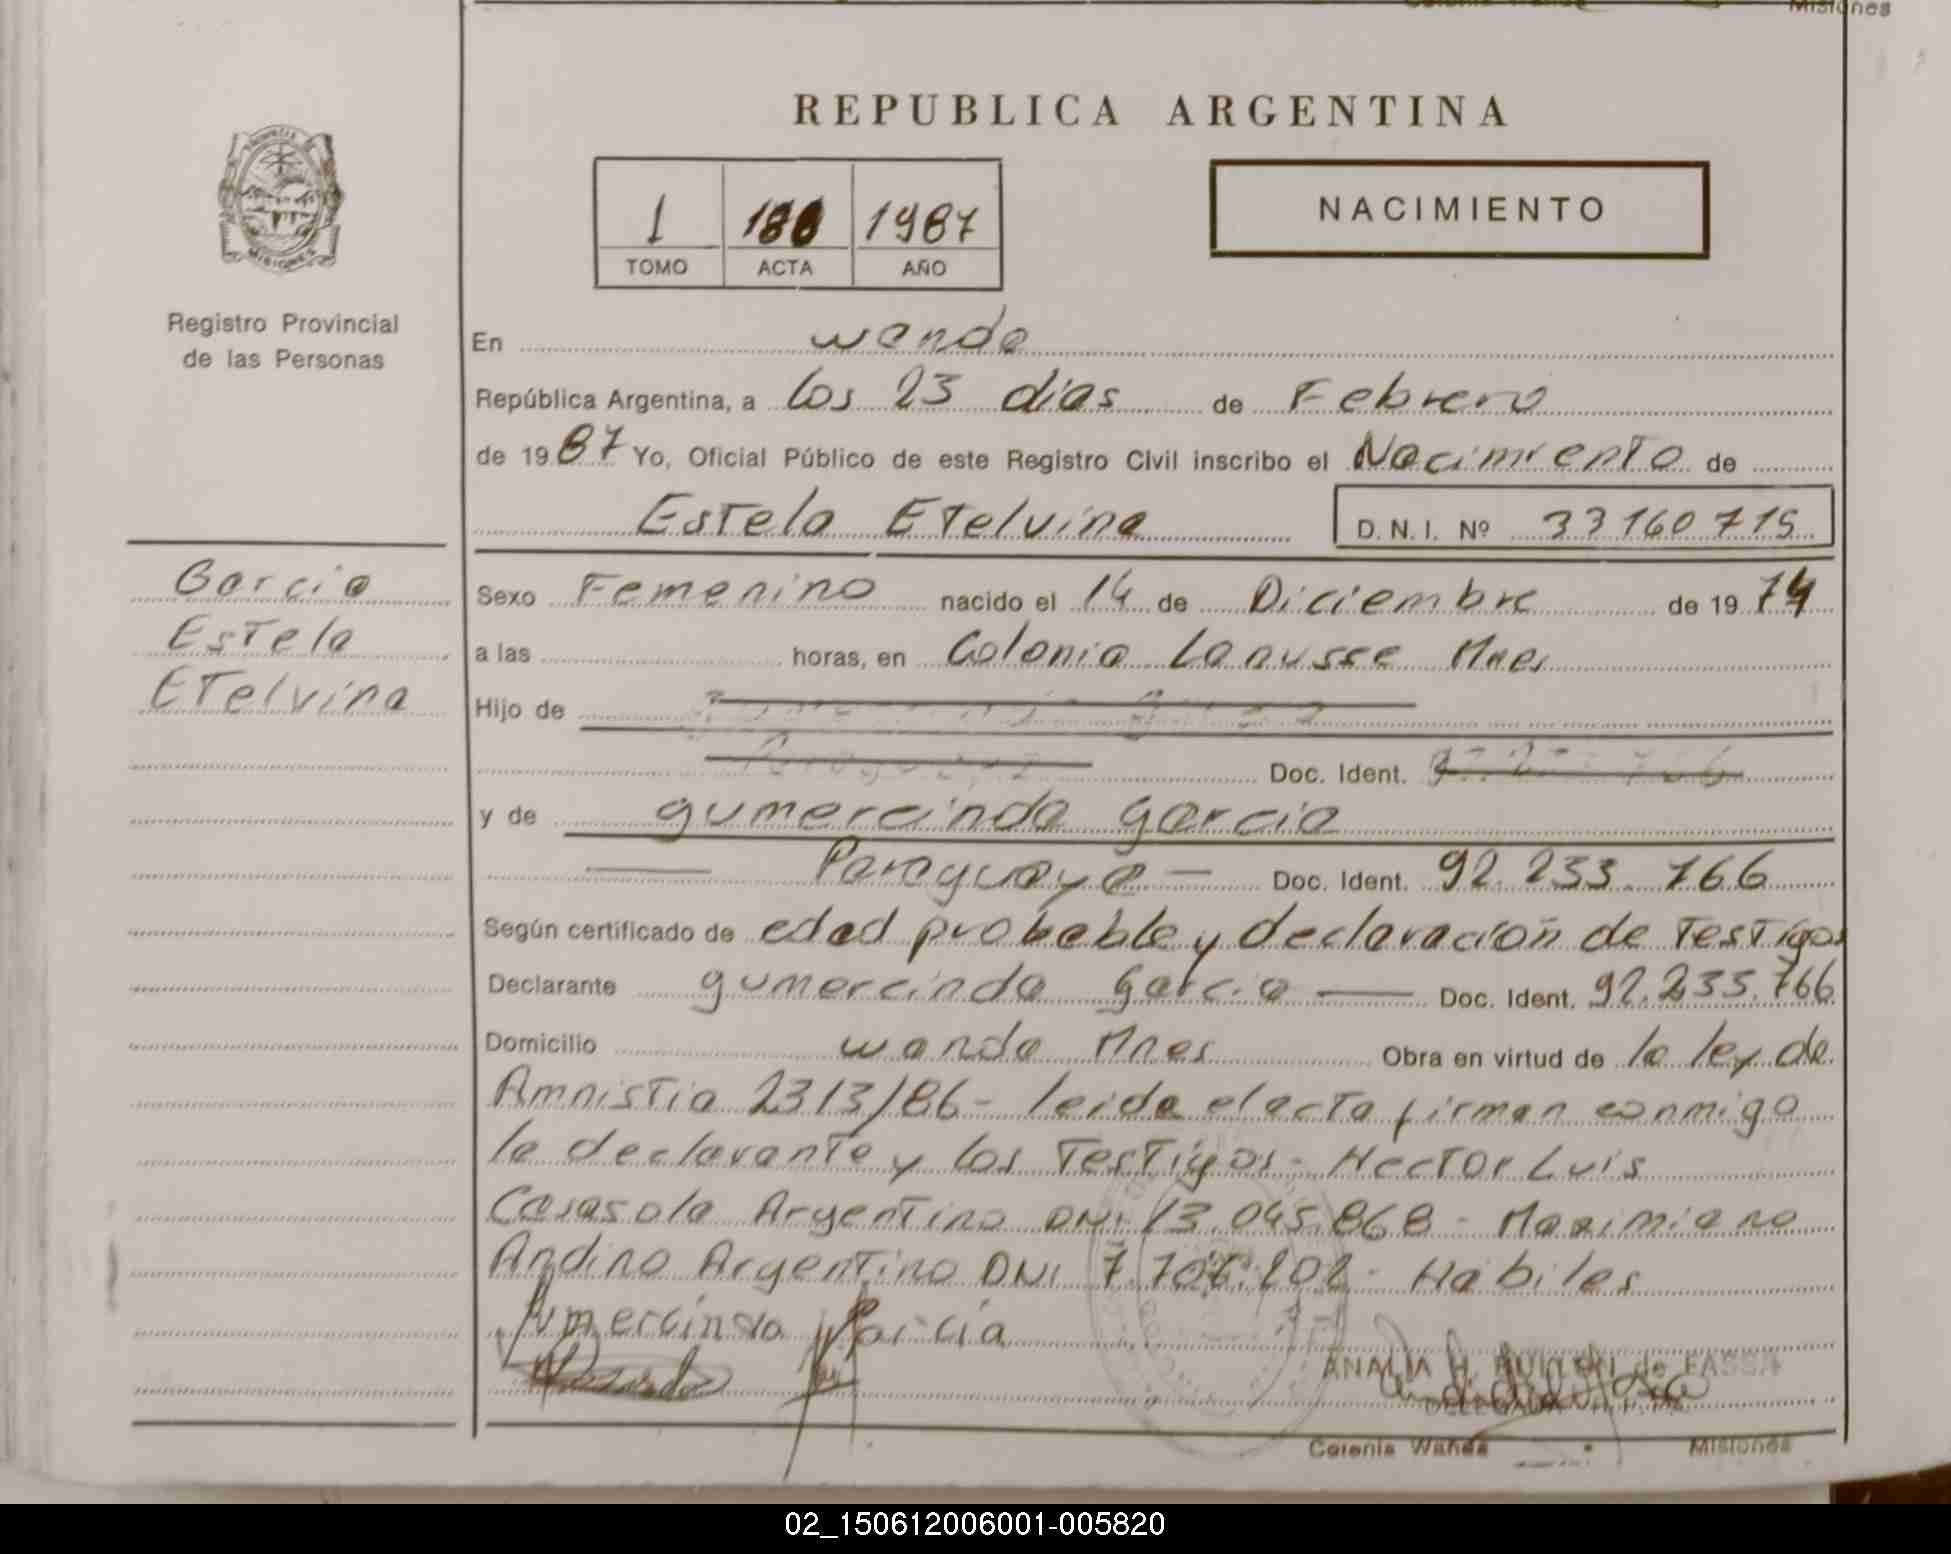 Misiones
REPUBLICA ARGENTINA
1 188 1987
TOMO ACTA AÑO
NACIMIENTO
MISIONES
Registro Provincial
de las Personas
En wanda
República Argentina, a los 23 dias de Febrero
de 1987 Yo, Oficial Público de este Registro Civil inscribo el Nacimiento de
Estela Etelvina D.N.I. Nº 33160715
Garcia
Estela
Etelvina
Sexo Femenino nacido el 14 de Diciembre de 1974
a las horas, en Colonia Lanusse Mnes
Hijo de
Paraguaya Doc. Ident.
y de gumercinda garcia
Paraguaya Doc. Ident. 92.233.766
Según certificado de edad probable y declaración de Testigos
Declarante gumercinda Garcia Doc. Ident. 92.233.766
Domicilio wanda Mnes Obra en virtud de la ley de
Amnistia 2313/86 - leida el acta firman conmigo
la declarante y los Testigos - Hector Luis
Casasola Argentino DNI 13.045.868 - Maximiano
Andino Argentino DNI - Habiles
Gumercinda Garcia
ANALIA H. de FASSA
DELEGADA
Colonia Wanda Misiones
02_150612006001-005820